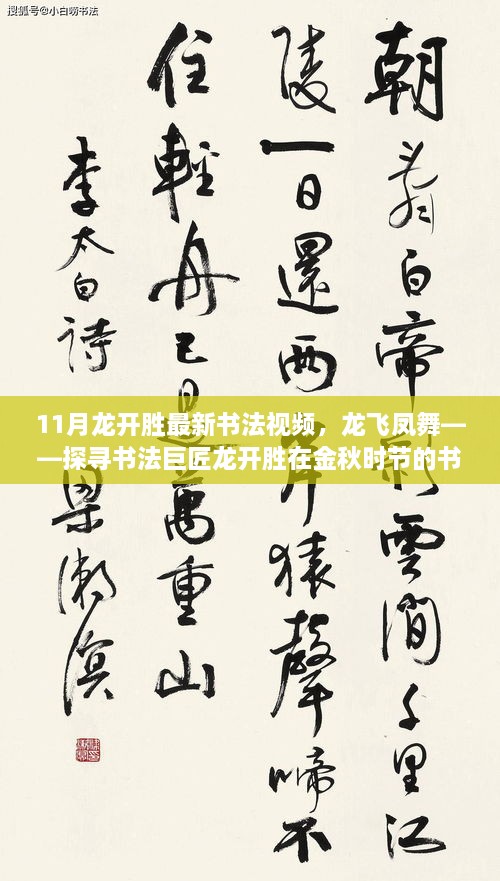 搜狐号@小白唠书法
朝辭白帝彩雲間千里江
陵一日還兩岸猿聲啼不
住輕舟已過萬重山
李太白詩
梁漱溟
11月龙开胜最新书法视频，龙飞凤舞—
—探寻书法巨匠龙开胜在金秋时节的书